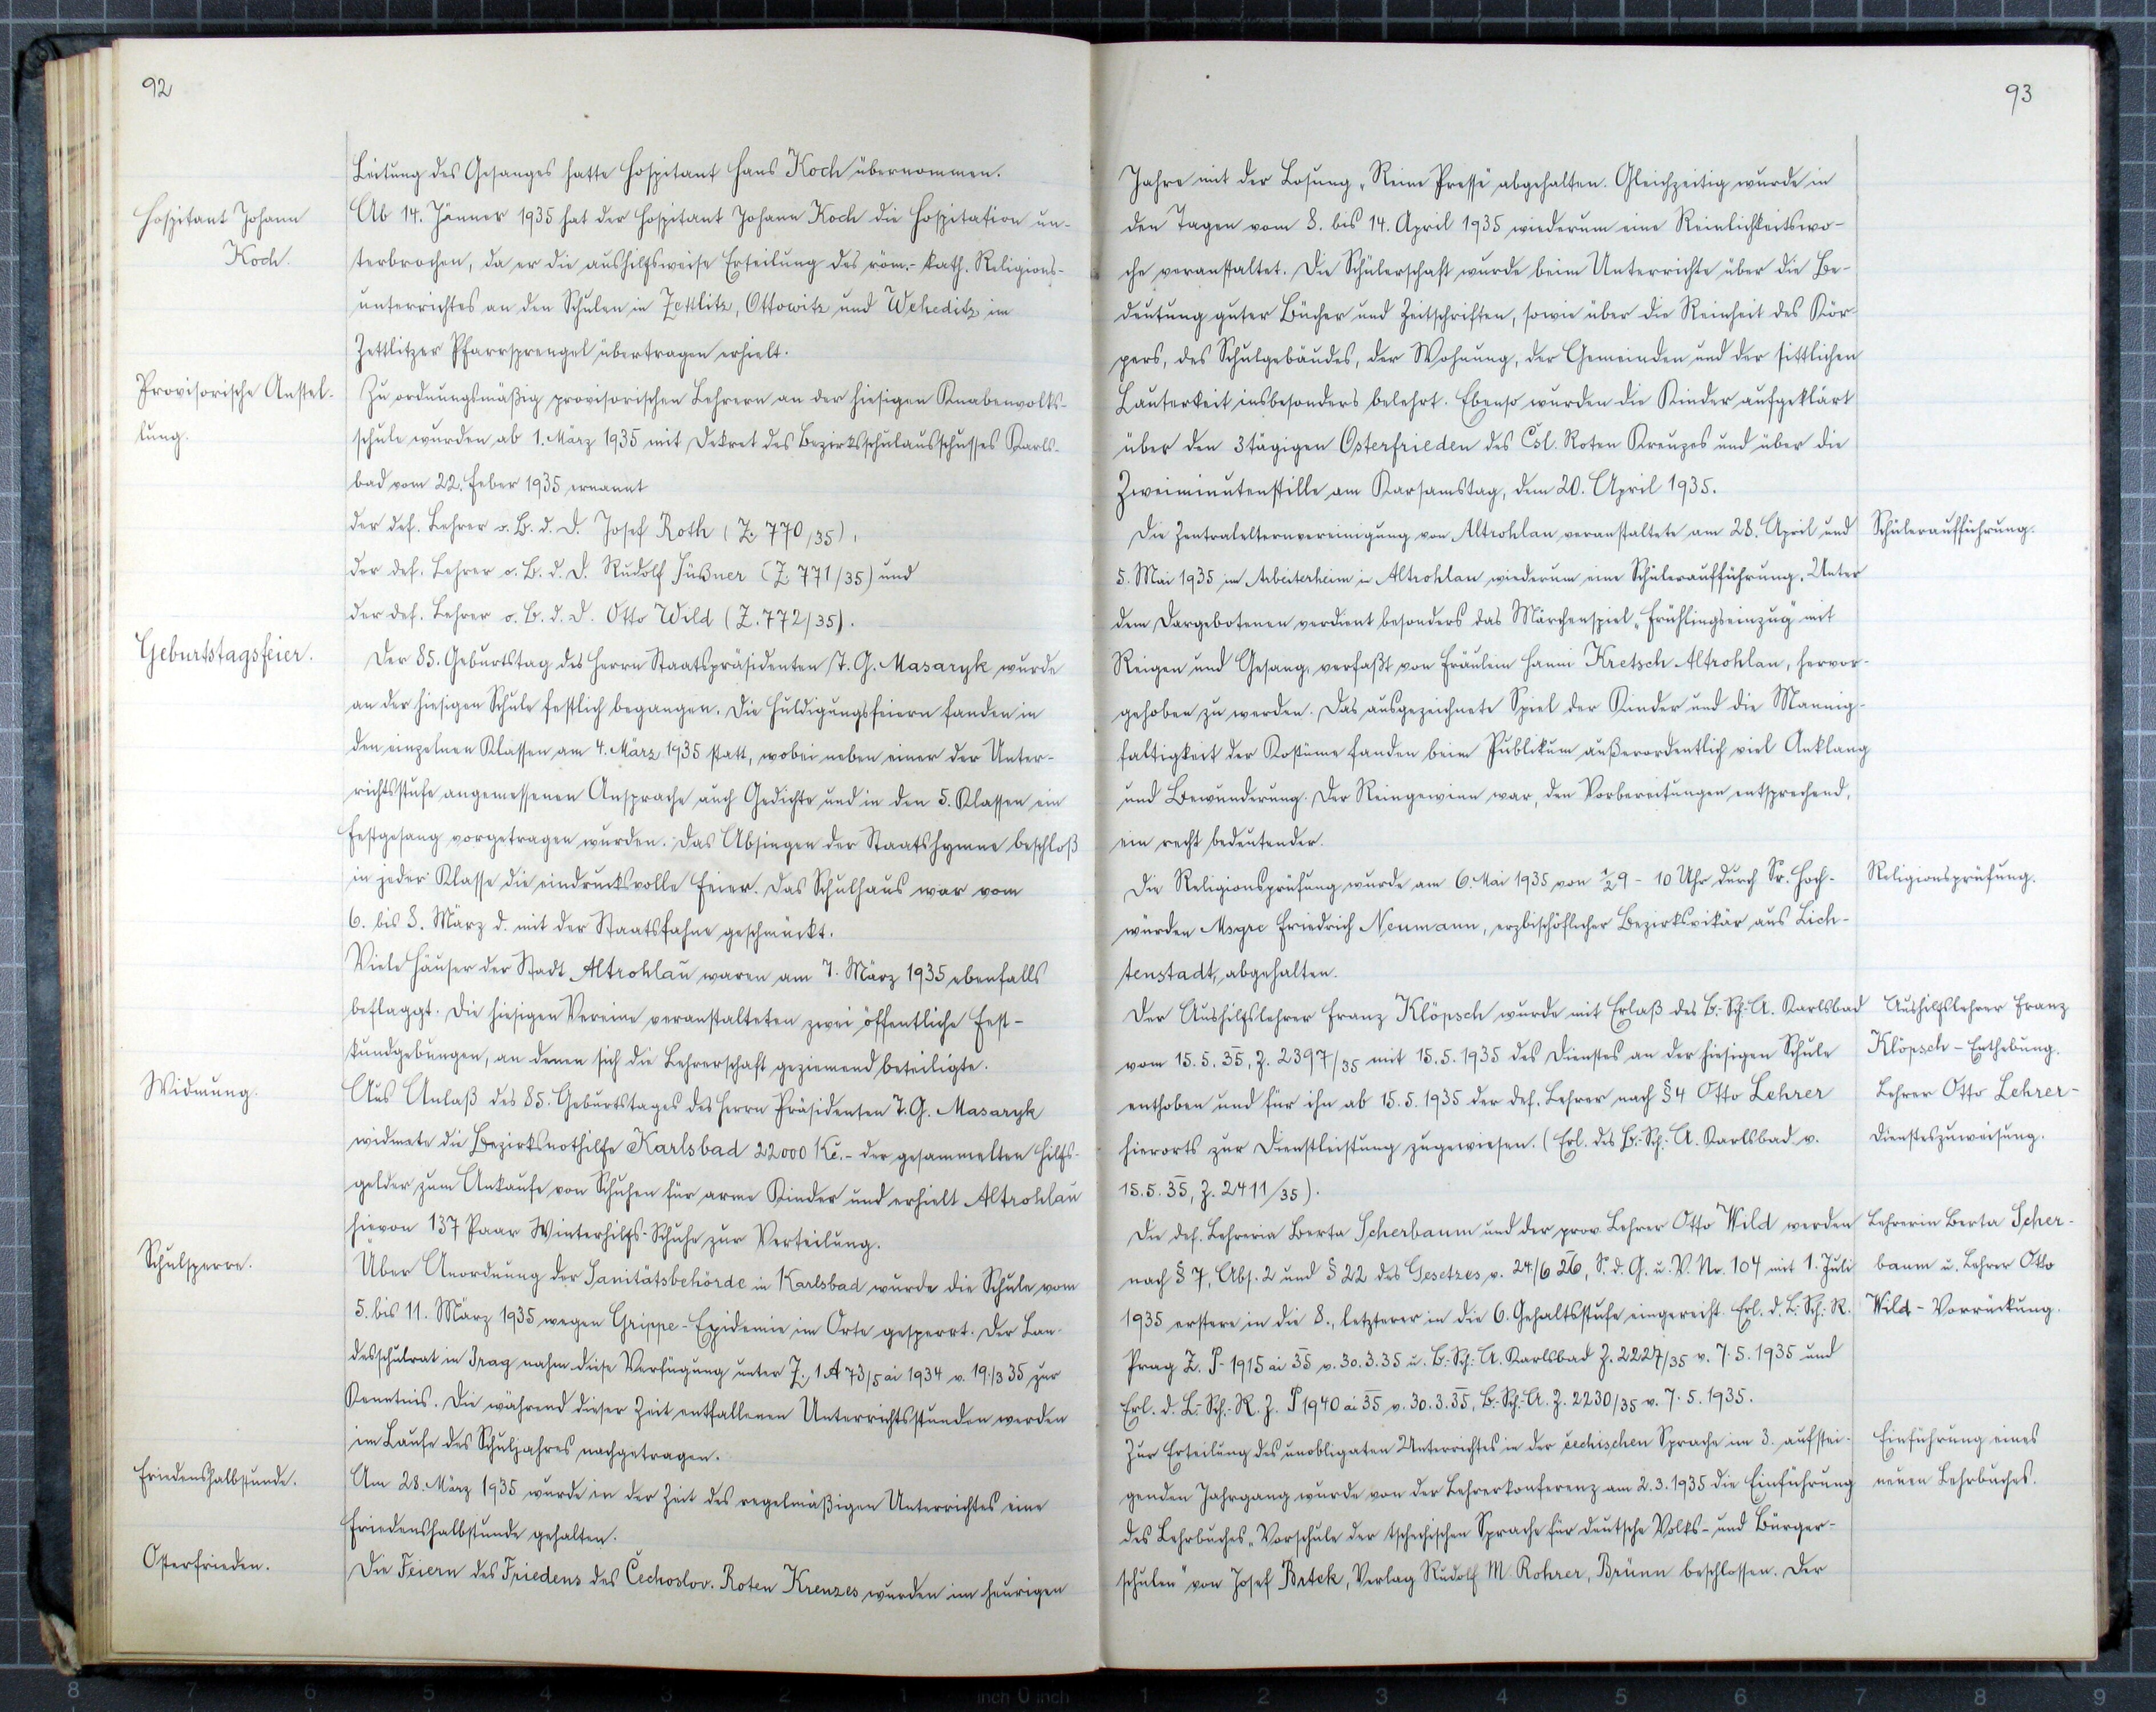 92
Leitung des Gesanges hatte Hospitant Hans Koch übernommen.
Hospitant Johann
Koch.
Ab 14. Jänner 1935 hat der Hospitant Johann Koch die Hospitation un-
terbrochen, da er die aushilfsweise Erteilung des röm.-kath. Religions-
unterrichtes an den Schulen in Zettlitz, Ottowitz und Weheditz im
Zettlitzer Pfarrsprengel übertragen erhielt.
Provisorische Anstel-
lung.
Zu ordnungsmäßig provisorischen Lehrern an der hiesigen Knabenvolks-
schule wurden ab 1. März 1935 mit Dekret des Bezirksschulausschusses Karls-
bad vom 22. Feber 1935 ernannt
der def. Lehrer o. B. d. D. Josef Roth (Z. 770/35),
der def. Lehrer o. B. d. D. Rudolf Süßner (Z. 771/35) und
der def. Lehrer o. B. d. D. Otto Wild (Z. 772/35).
Geburtstagsfeier.
Der 85. Geburtstag des Herrn Staatspräsidenten T. G. Masaryk wurde
an der hiesigen Schule festlich begangen. Die Huldigungsfeiern fanden in
den einzelnen Klassen am 4. März 1935 statt, wobei neben einer der Unter-
richtsstufe angemessenen Ansprache auch Gedichte und in den 5. Klassen ein
Festgesang vorgetragen wurden. Das Absingen der Staatshymne beschloß
in jeder Klasse die eindrucksvolle Feier. Das Schulhaus war vom
6. bis 8. März d. mit der Staatsfahne geschmückt.
Viele Häuser der Stadt Altrohlau waren am 7. März 1935 ebenfalls
beflaggt. Die hiesigen Vereine veranstalteten zwei öffentliche Fest-
kundgebungen, an denen sich die Lehrerschaft geziemend beteiligte.
Widmung.
Aus Anlaß des 85. Geburtstages des Herrn Präsidenten T. G. Masaryk
widmete die Bezirksnothilfe Karlsbad 22000 Kč.- der gesammelten Hilfs-
gelder zum Ankaufe von Schuhen für arme Kinder und erhielt Altrohlau
hievon 137 Paar Winterhilfs-Schuhe zur Verteilung.
Schulsperre.
Über Anordnung der Sanitätsbehörde in Karlsbad wurde die Schule vom
5. bis 11. März 1935 wegen Grippe-Epidemie im Orte gesperrt. Der Lan-
desschulrat in Prag nahm diese Verfügung unter Z. 1 A 73/5 ai 1934 v. 19./3 35 zur
Kenntnis. Die während dieser Zeit entfallenen Unterrichtsstunden werden
im Laufe des Schuljahres nachgetragen.
Friedenshalbstunde.
Am 28. März 1935 wurde in der Zeit des regelmäßigen Unterrichtes eine
Friedenshalbstunde gehalten.
Osterfrieden.
Die Feiern des Friedens des Čechoslov. Roten Kreuzes wurden im heurigen
93
Jahre mit der Losung „Reine Presse" abgehalten. Gleichzeitig wurde in
den Tagen vom 8. bis 14. April 1935 wiederum eine Reinlichkeitswo-
che veranstaltet. Die Schülerschaft wurde beim Unterrichte über die Be-
deutung guter Bücher und Zeitschriften, sowie über die Reinheit des Kör-
pers, des Schulgebäudes, der Wohnung, der Gemeinden und der sittlichen
Lauterkeit insbesonders belehrt. Ebenso wurden die Kinder aufgeklärt
über den 3tägigen Osterfrieden des Čsl. Roten Kreuzes und über die
Zweiminutenstille am Karsamstag, dem 20. April 1935.
Die Zentralelternvereinigung von Altrohlau veranstaltete am 28. April und
Schüleraufführung.
5. Mai 1935 im Arbeiterheim in Altrohlau wiederum eine Schüleraufführung. Unter
dem Dargebotenen verdient besonders das Märchenspiel „Frühlingseinzug" mit
Reigen und Gesang, verfaßt von Fräulein Hanni Kretsch Altrohlau, hervor-
gehoben zu werden. Das ausgezeichnete Spiel der Kinder und die Mannig-
faltigkeit der Kostüme fanden beim Publikum außerordentlich viel Anklang
und Bewunderung. Der Reingewinn war, den Vorbereitungen entsprechend,
ein recht bedeutender.
Die Religionsprüfung wurde am 6. Mai 1935 von ½ 9 - 10 Uhr durch Sr. Hoch-
Religionsprüfung.
würden Msgre Friedrich Neumann, erzbischöflicher Bezirksvikär aus Lich-
tenstadt, abgehalten.
Der Aushilfslehrer Franz Klöpsch wurde mit Erlaß des B.-Sch.-A. Karlsbad
Aushilfslehrer Franz
vom 15. 5. 35, Z. 2397/35 mit 15. 5. 1935 des Dienstes an der hiesigen Schule
Klöpsch - Enthebung.
enthoben und für ihn ab 15. 5. 1935 der def. Lehrer nach § 4 Otto Lehrer
Lehrer Otto Lehrer-
hierorts zur Dienstleistung zugewiesen. (Erl. des B.-Sch.-A. Karlsbad v.
Dienstzuweisung.
15. 5. 35, Z. 2411/35).
Die def. Lehrerin Berta Scherbaum und der prov. Lehrer Otto Wild werden
Lehrerin Berta Scher-
nach § 7, Abs. 2 und § 22 des Gesetzes v. 24./6 26, S. d. G. u. V. Nr. 104 mit 1. Juli
baum u. Lehrer Otto
1935 erstere in die 8., letzterer in die 6. Gehaltsstufe eingereiht. Erl. d. L.-Sch.-R.
Wild - Vorrückung.
Prag Z. P-1915 ai 35 v. 30. 3. 35 u. B.-Sch.-A. Karlsbad Z. 2227/35 v. 7. 5. 1935 und
Erl. d. L.-Sch.-R. Z. P 1940 ai 35 v. 30. 3. 35, B.-Sch.-A. Z. 2230/35 v. 7. 5. 1935.
Zur Erteilung des unobligaten Unterrichtes in der čechischen Sprache im 3. aufstei-
Einführung eines
genden Jahrgang wurde von der Lehrerkonferenz am 2. 3. 1935 die Einführung
neuen Lehrbuches.
des Lehrbuches „Vorschule der tschechischen Sprache für deutsche Volks- und Bürger-
schulen" von Josef Brtek, Verlag Rudolf M. Rohrer, Brünn beschlossen. Der
8 7 6 5 4 3 2 1 inch 0 inch 1 2 3 4 5 6 7 8 9